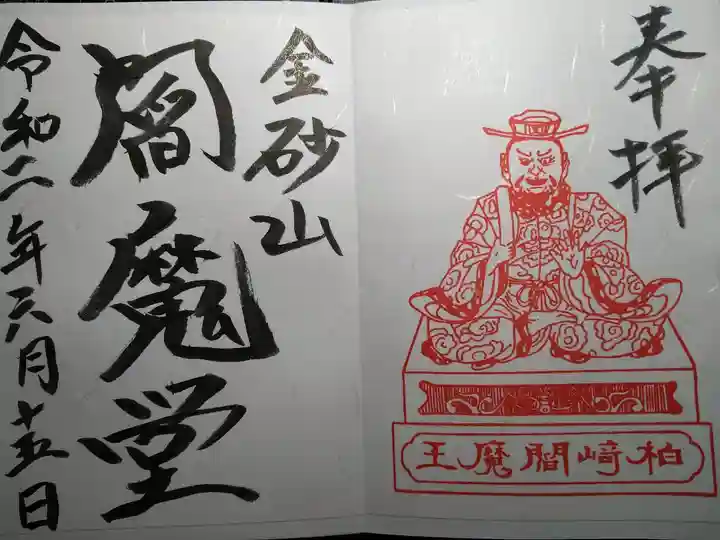 奉拝
柏崎閻魔王
金砂山
閻魔堂
令和二年六月十五日